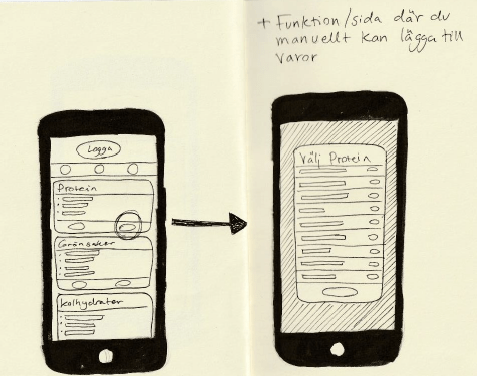 + Funktion/sida där du
manuellt kan lägga till
varor
Logga
Protein
Grönsaker
Kolhydrater
Välj Protein